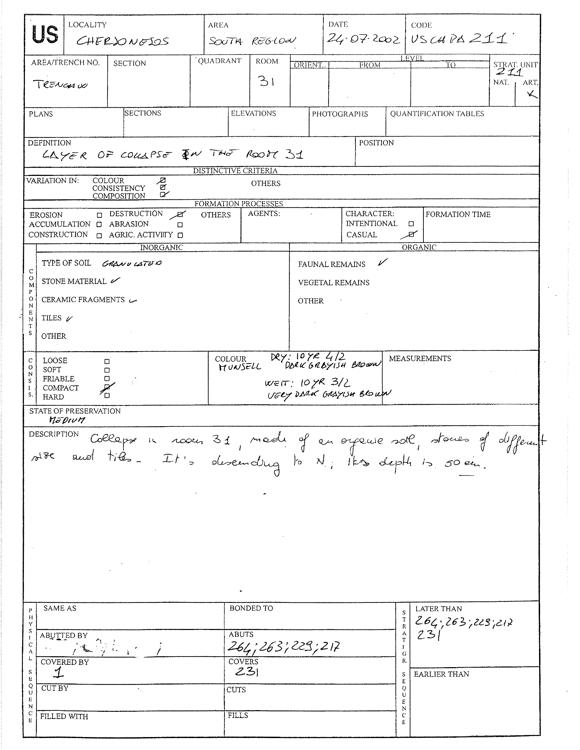 US
LOCALITY
CHERSONESOS
AREA
SOUTH REGION
DATE
24-07-2002
CODE
USCHPA 211
AREA/TRENCH NO.
SECTION
QUADRANT
ROOM
31
LEVEL
ORIENT.
FROM
TO
STRAT. UNIT
211
NAT.
ART.
PLANS
SECTIONS
ELEVATIONS
PHOTOGRAPHS
QUANTIFICATION TABLES
DEFINITION
LAYER OF COLLAPSE IN THE ROOM 31
POSITION
DISTINCTIVE CRITERIA
VARIATION IN:
COLOUR
CONSISTENCY
COMPOSITION
OTHERS
FORMATION PROCESSES
EROSION
DESTRUCTION
OTHERS
ACCUMULATION
ABRASION
CONSTRUCTION
AGRIC. ACTIVITY
AGENTS:
CHARACTER:
INTENTIONAL
CASUAL
FORMATION TIME
COMPONENTS
INORGANIC
TYPE OF SOIL GRANULATED
STONE MATERIAL
CERAMIC FRAGMENTS
TILES
OTHER
ORGANIC
FAUNAL REMAINS
VEGETAL REMAINS
OTHER
CONSIS.
LOOSE
SOFT
FRIABLE
COMPACT
HARD
COLOUR
MUNSELL
DRY: 10 YR 4/2
DARK GRAYISH BROWN
WET: 10 YR 3/2
VERY DARK GRAYISH BROWN
MEASUREMENTS
STATE OF PRESERVATION
MEDIUM
DESCRIPTION Collapse in room 31, made of an organic soil, stones of different
size and tiles. It's descending to N; its depth is 50 cm.
PHYSICAL SEQUENCE
SAME AS
BONDED TO
ABUTTED BY
ABUTS
264;263;229;217
COVERED BY
1
COVERS
231
CUT BY
CUTS
FILLED WITH
FILLS
STRATIGR. SEQUENCE
LATER THAN
264;263;229;217
231
EARLIER THAN